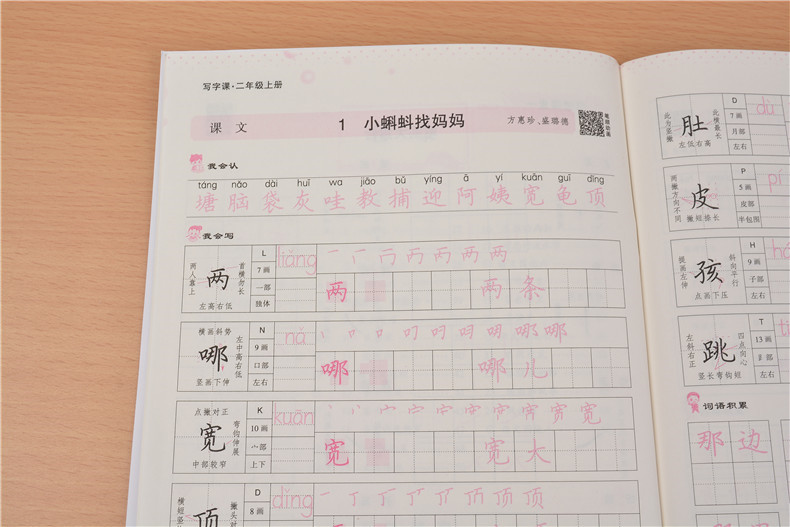 写字课·二年级上册
课 文 1 小蝌蚪找妈妈 方惠珍、盛璐德
我会认
táng nǎo dài huī wa jiāo bǔ yíng ā yí kuān guī dǐng
塘 脑 袋 灰 哇 教 捕 迎 阿 姨 宽 龟 顶
我会写
两人靠上 两 首横勿长 左高右低
L 7画 一部 独体
liǎng
两 两 条
横画斜势 哪 左中高右低 竖画下伸
N 9画 口部 左右
nǎ
哪 哪 儿
点撇对正 宽 弯钩伸展 中部较窄
K 10画 宀部 上下
kuān
宽 宽 大
顶
D 8画
dǐng
此为竖撇 肚 此横最长 左低右高
D 7画 月部 左右
dù
两撇方向不同 皮 撇短捺长
P 5画 皮部 半包围
pí
提画左伸 孩 斜向平行 点画下压
H 9画 子部 左右
左斜右正 跳 四点向心 竖长弯钩短
T 13画 左右
词语积累
那 边